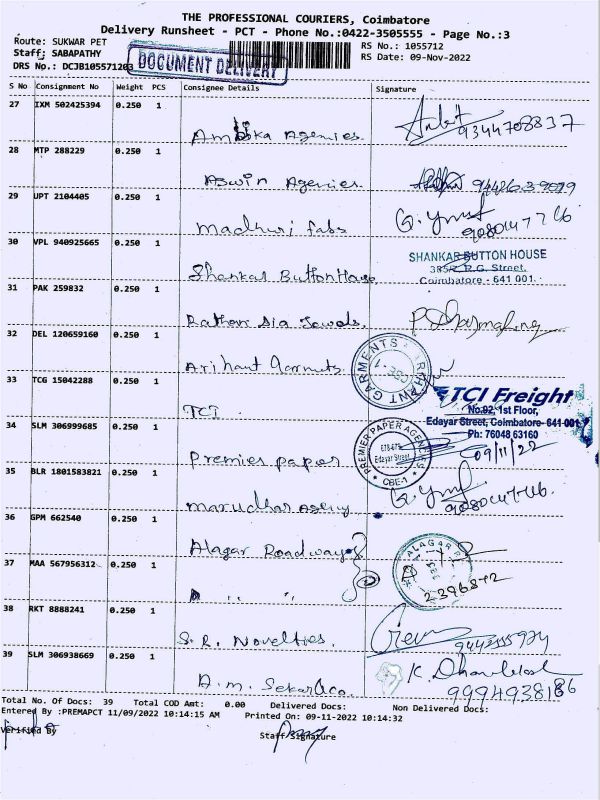 THE PROFESSIONAL COURIERS, Coimbatore
Delivery Runsheet - PCT - Phone No.:0422-3505555 - Page No.:3
Route: SUKWAR PET
RS No.: 1055712
Staff: SABAPATHY
RS Date: 09-Nov-2022
DRS No.: DCJB105571203
DOCUMENT DELIVERY
S No Consignment No Weight PCS Consignee Details Signature
27 IXM 502425394 0.250 1
Ambika Agencies. 9344708837
28 MTP 288229 0.250 1
Aswin Agencies.
29 UPT 2104405 0.250 1
Madhuri fabs
30 VPL 940925665 0.250 1
SHANKAR BUTTON HOUSE
385, R.G. Street,
Coimbatore - 641 001.
Shankar Button House
31 PAK 259832 0.250 1
32 DEL 120659160 0.250 1
Arihant Garments
ARIHANT GARMENTS
CBE-1
33 TCG 15042288 0.250 1
TCI Freight
No.92, 1st Floor,
Edayar Street, Coimbatore- 641 001
Ph: 76048 63160
TCI
34 SLM 306999685 0.250 1
PREMIER PAPER AGENCIES
Edayar Street
CBE-1
09/11/22
Premier paper
35 BLR 1801583821 0.250 1
Marudhar Agency
36 GPM 662540 0.250 1
Alagar Roadways
37 MAA 567956312 0.250 1
ALAGAR
" "
38 RKT 8888241 0.250 1
S. R. Novelties.
39 SLM 306938669 0.250 1
A.M. Sekar & co.
Total No. Of Docs: 39 Total COD Amt: 0.00 Delivered Docs: Non Delivered Docs:
Entered By :PREMAPCT 11/09/2022 10:14:15 AM Printed On: 09-11-2022 10:14:32
Verified By Staff Signature